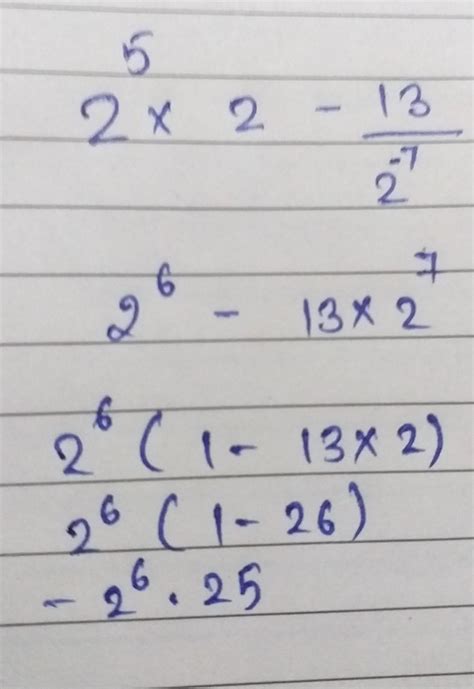 2⁵ × 2 - 13/2⁻⁷
2⁶ - 13 × 2⁷
2⁶ (1 - 13 × 2)
2⁶ (1 - 26)
- 2⁶ . 25